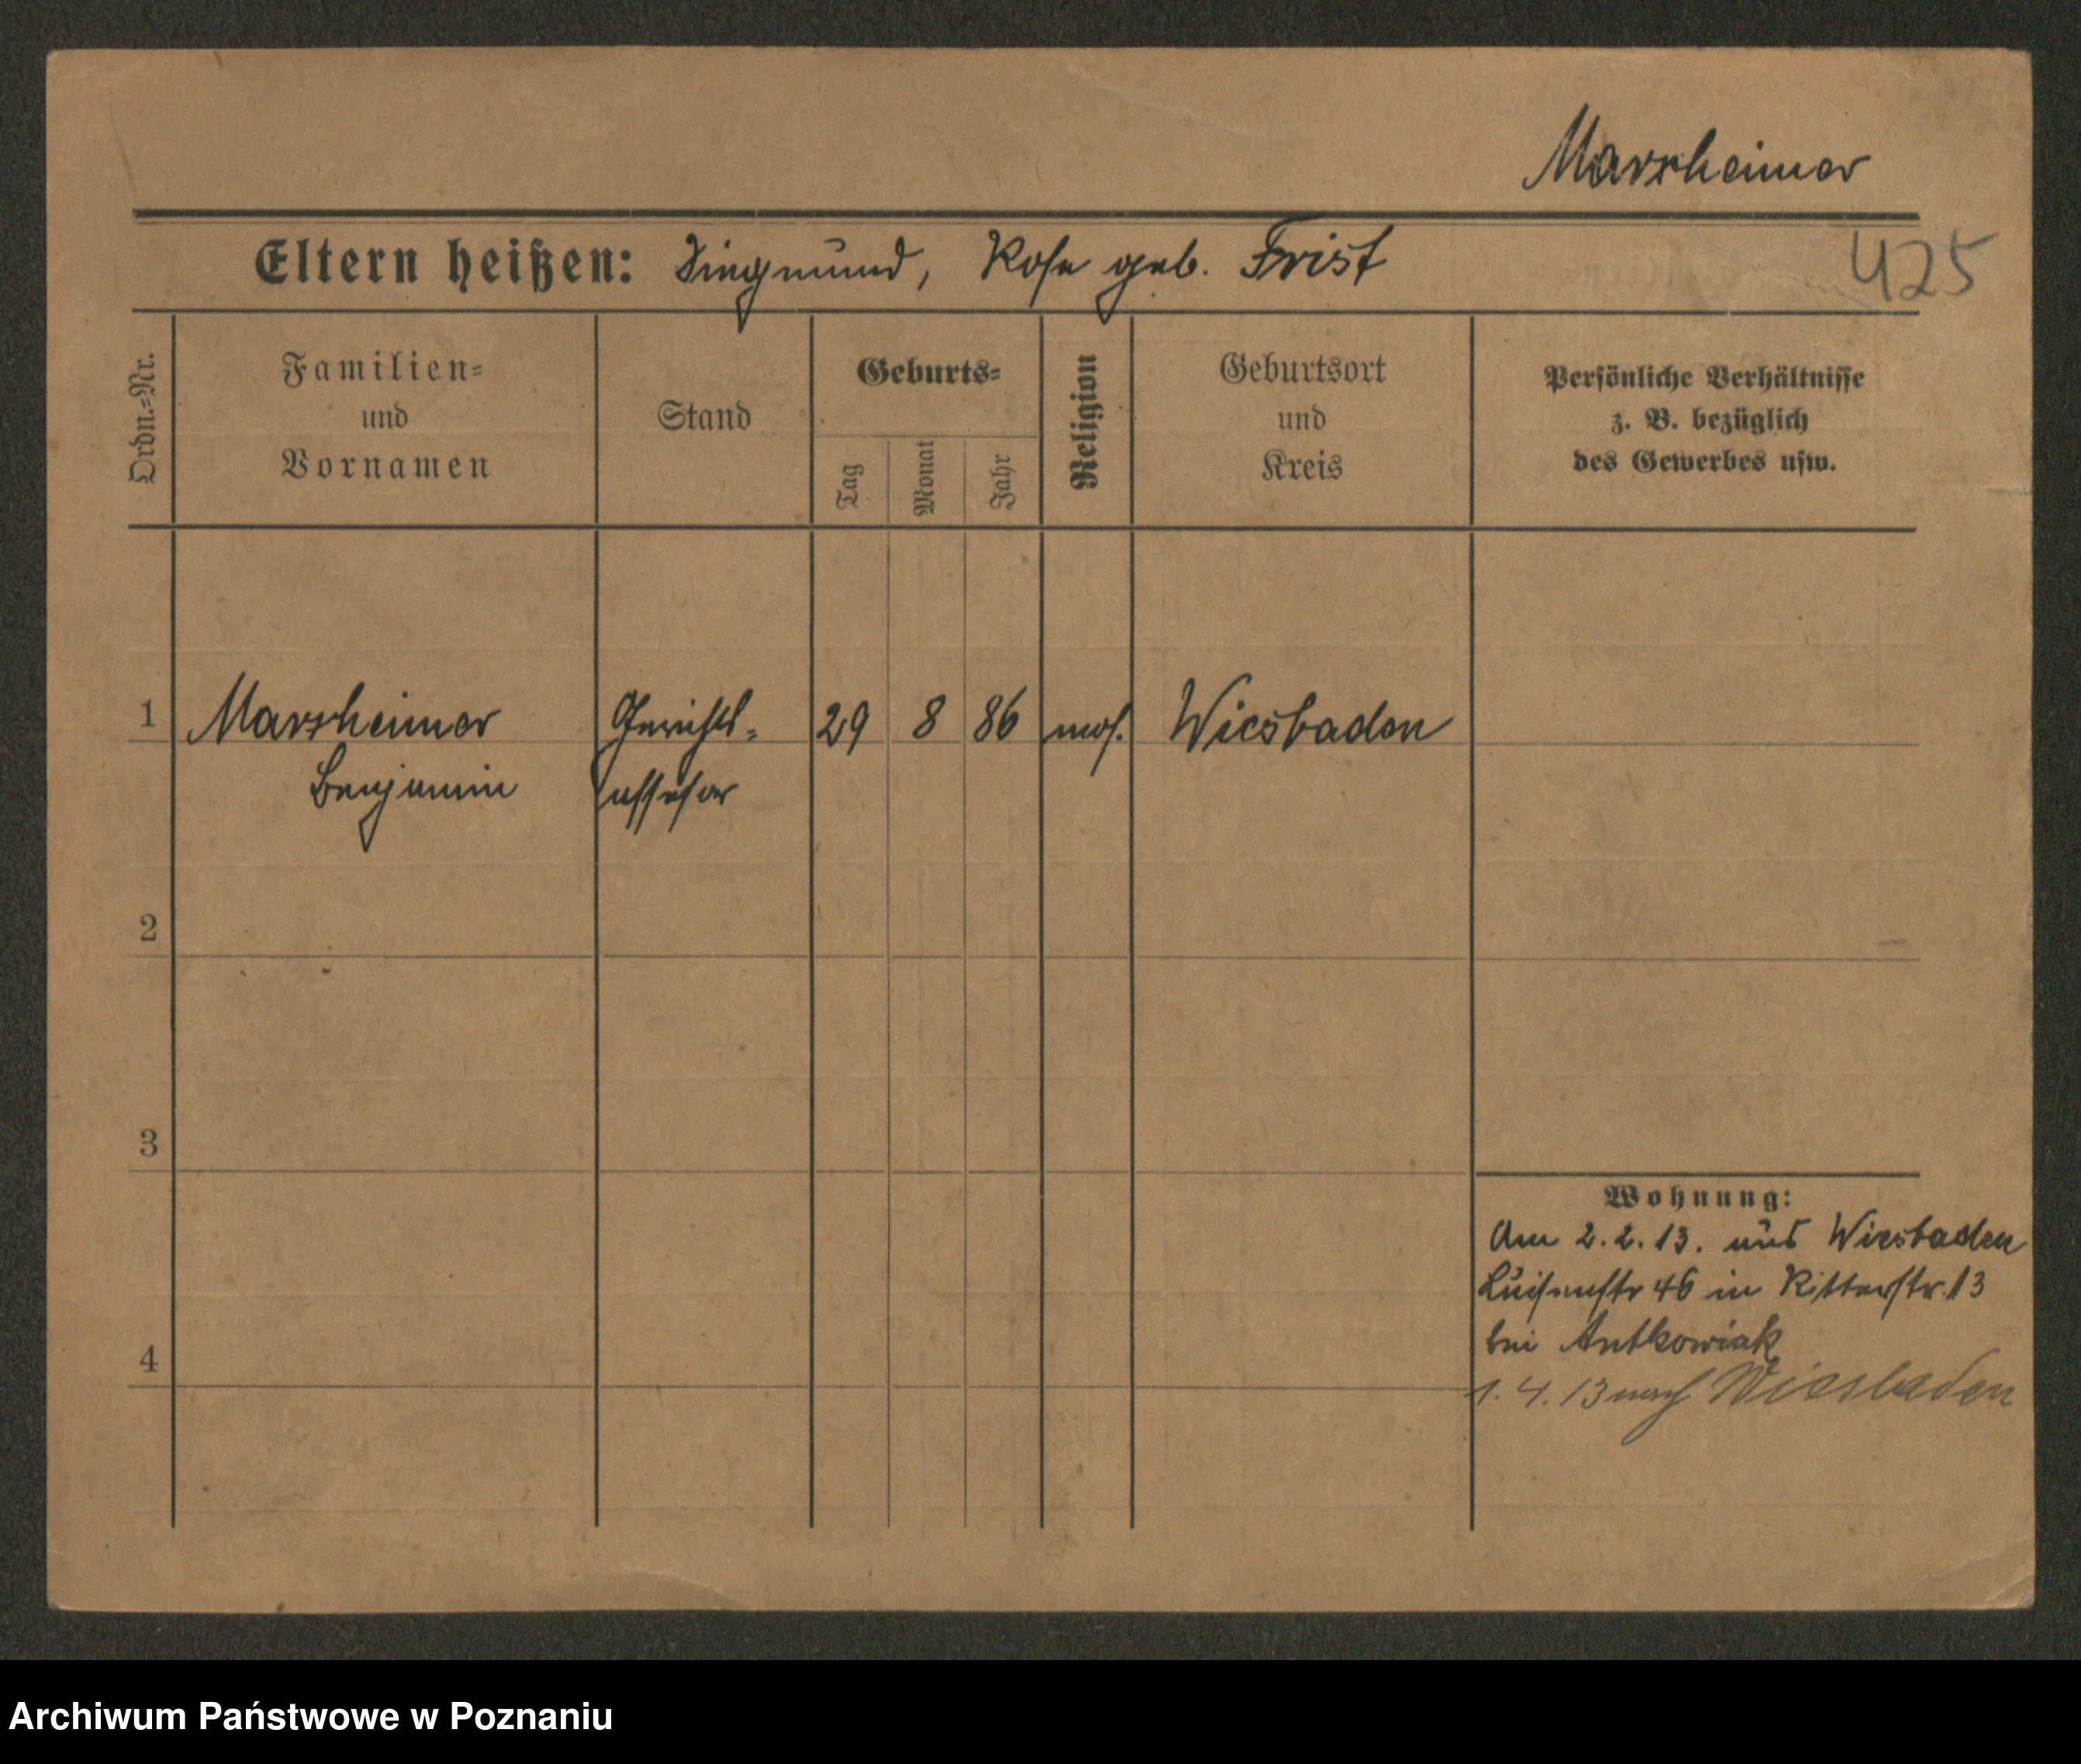 Marxheimer
Eltern heißen: Siegmund, Rosa geb. Frist
425
Ordn.=Nr.
Familien=
und
Vornamen
Stand
Geburts=
Tag
Monat
Jahr
Religion
Geburtsort
und
Kreis
Persönliche Verhältnisse
z. B. bezüglich
des Gewerbes usw.
1 Marxheimer Gerichts= 29 8 86 mos. Wiesbaden
Benjamin assesor
2
3
4
Wohnung:
Am 2.2.13. aus Wiesbaden
Luisenstr 46 in Ritterstr. 13
bei Antkowiak
1. 4. 13 nach Wiesbaden
Archiwum Państwowe w Poznaniu